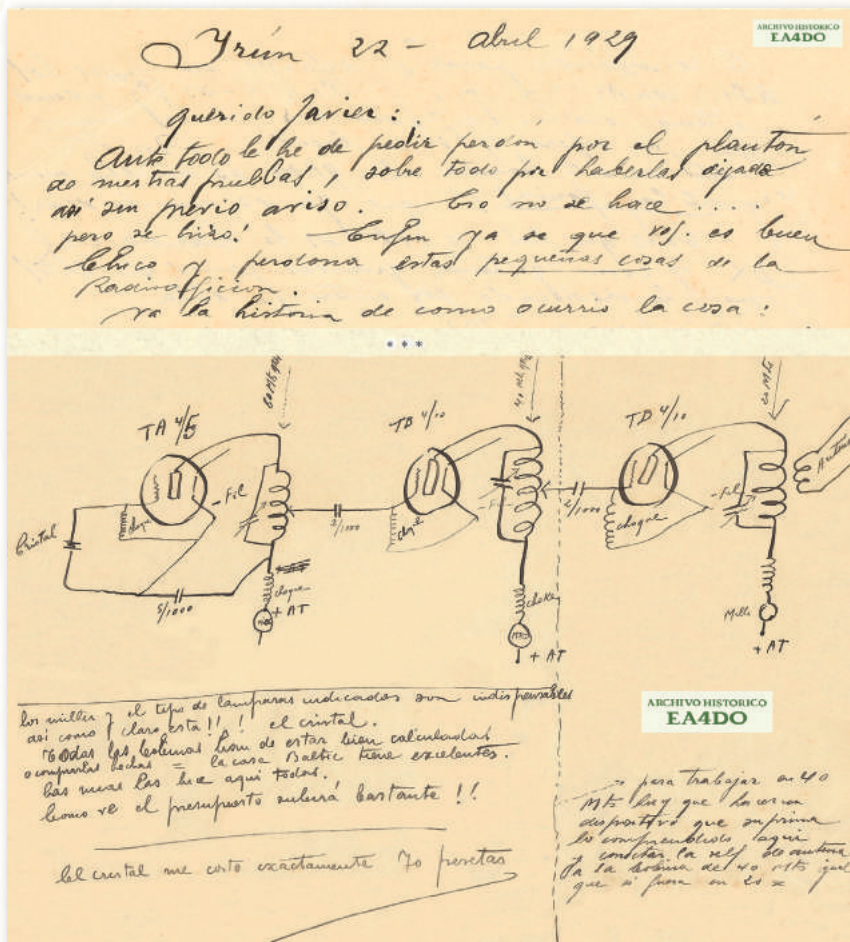 Yrún 22 - abril 1929
ARCHIVO HISTORICO
EA4DO
querido Javier:
Ante todo le he de pedir perdón por el plantón
de nuestras pruebas, sobre todo por haberlas dejado
así sin previo aviso. Eso no se hace ....
pero se hizo! Enfin ya se que es buen
chico y perdona estas pequeñas cosas de la
va la historia de como ocurrio la cosa:
* * *
TA 4/5
TB 4/10
TD 4/10
20 Mts
Cristal
choque
- Fil
2/1000
choque
- Fil
2/1000
choque
- Fil
Antena
5/1000
choque
+ AT
choke
+ AT
Milli
+ AT
los millis y el tipo de lamparas indicadas son indispensables
así como claro esta!!! el cristal.
Todas las bobinas han de estar bien calculadas
o comprarlas hechas = la casa Baltic tiene excelentes.
las mias las hice aqui todas.
Como ve el presupuesto subirá bastante!!
El cristal me costo exactamente 70 pesetas
ARCHIVO HISTORICO
EA4DO
para trabajar en 40
Mts hay que hacer un
dispositivo que suprima
lo comprendido aqui
y conectar la self de antena
a la bobina de 40 Mts igual
que si fuera en 20 =